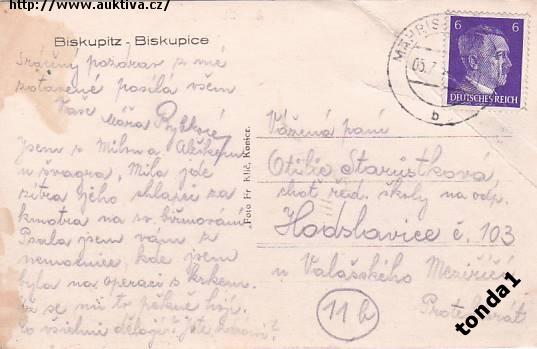 http://www.auktiva.cz/
Biskupitz - Biskupice
Srdečný pozdrav z mé
zotavené posílá všem
Vaše Mářa
Jsem s Milma
u švagra, Mila jde
zítra jeho chlapci za
kmotra na sv. biřmování
Psala jsem vám z
nemocnice, kde jsem
byla na operaci s krkem.
se mi to pěkně hojí.
Co všichni děláte? Jste zdraví?
Foto Fr. Klíč, Konice.
6 6
DEUTSCHES REICH
05.7
b
Vážená paní
Otilie Starůstková,
chot řed. školy na odp.
Hodslavice č. 103
u Valašského Meziříčí
Protektorát
11b
tonda1